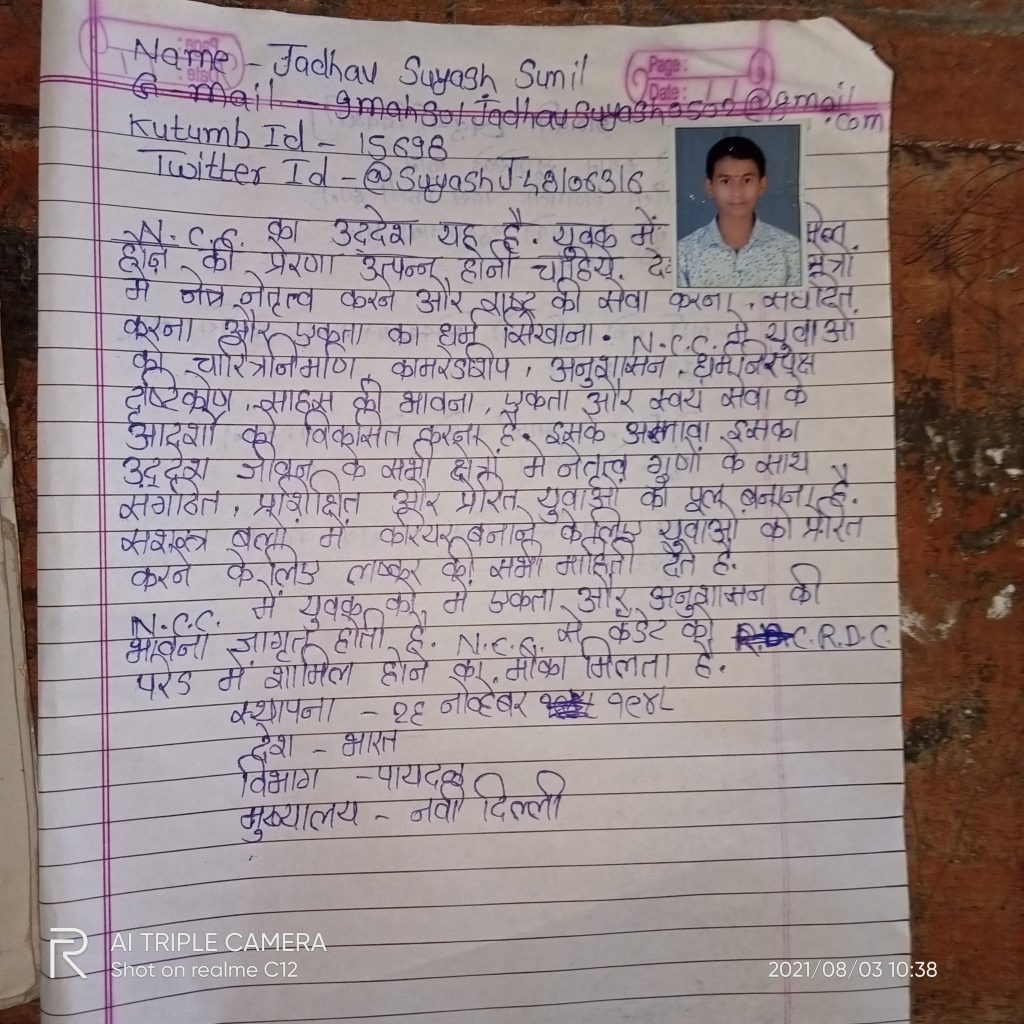 Name - Jadhav Suyash Sunil
Page:
Date:
Kutumb Id - 15698
Twitter Id - @SuyashJ48106316
N.C.C. का उद्देश यह है. युवक में
की प्रेरणा उत्पन्न होनी चाहिये.
में नेतृत्व करने और राष्ट्र की सेवा करना, संघटित
करना और एकता का धर्म सिखाना. N.C.C. मे युवाओ
का चारित्रनिर्माण, कामरेडशिप, अनुशासन, धर्मनिरपेक्ष
दृष्टिकोण, साहस की भावना, एकता और स्वयं सेवा के
आदर्शो को विकसित करना है. इसके अलावा इसका
उद्देश जीवन के सभी क्षेत्रों मे नेतृत्व गुणों के साथ
संगठित, प्रशिक्षित और प्रेरित युवाओ का पूल बनाना है.
सशस्त्र बलों में करियर बनाने के लिए युवाओ को प्रेरित
करने के लिए लष्कर की सभी माहिती देते है.
N.C.C. में युवक को मे एकता और अनुशासन की
भावना जागृत होती है. N.C.C. से कॅडेट को R.D.C.
परेड में शामिल होने का मौका मिलता है.
स्थापना - २६ नोव्हेंबर १९४८
देश - भारत
विभाग - पायदळ
मुख्यालय - नवी दिल्ली
R AI TRIPLE CAMERA
Shot on realme C12
2021/08/03 10:38